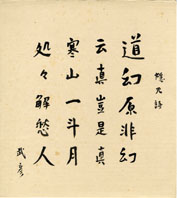 道幻原非幻
云真豈是真
寒山一斗月
処々解愁人